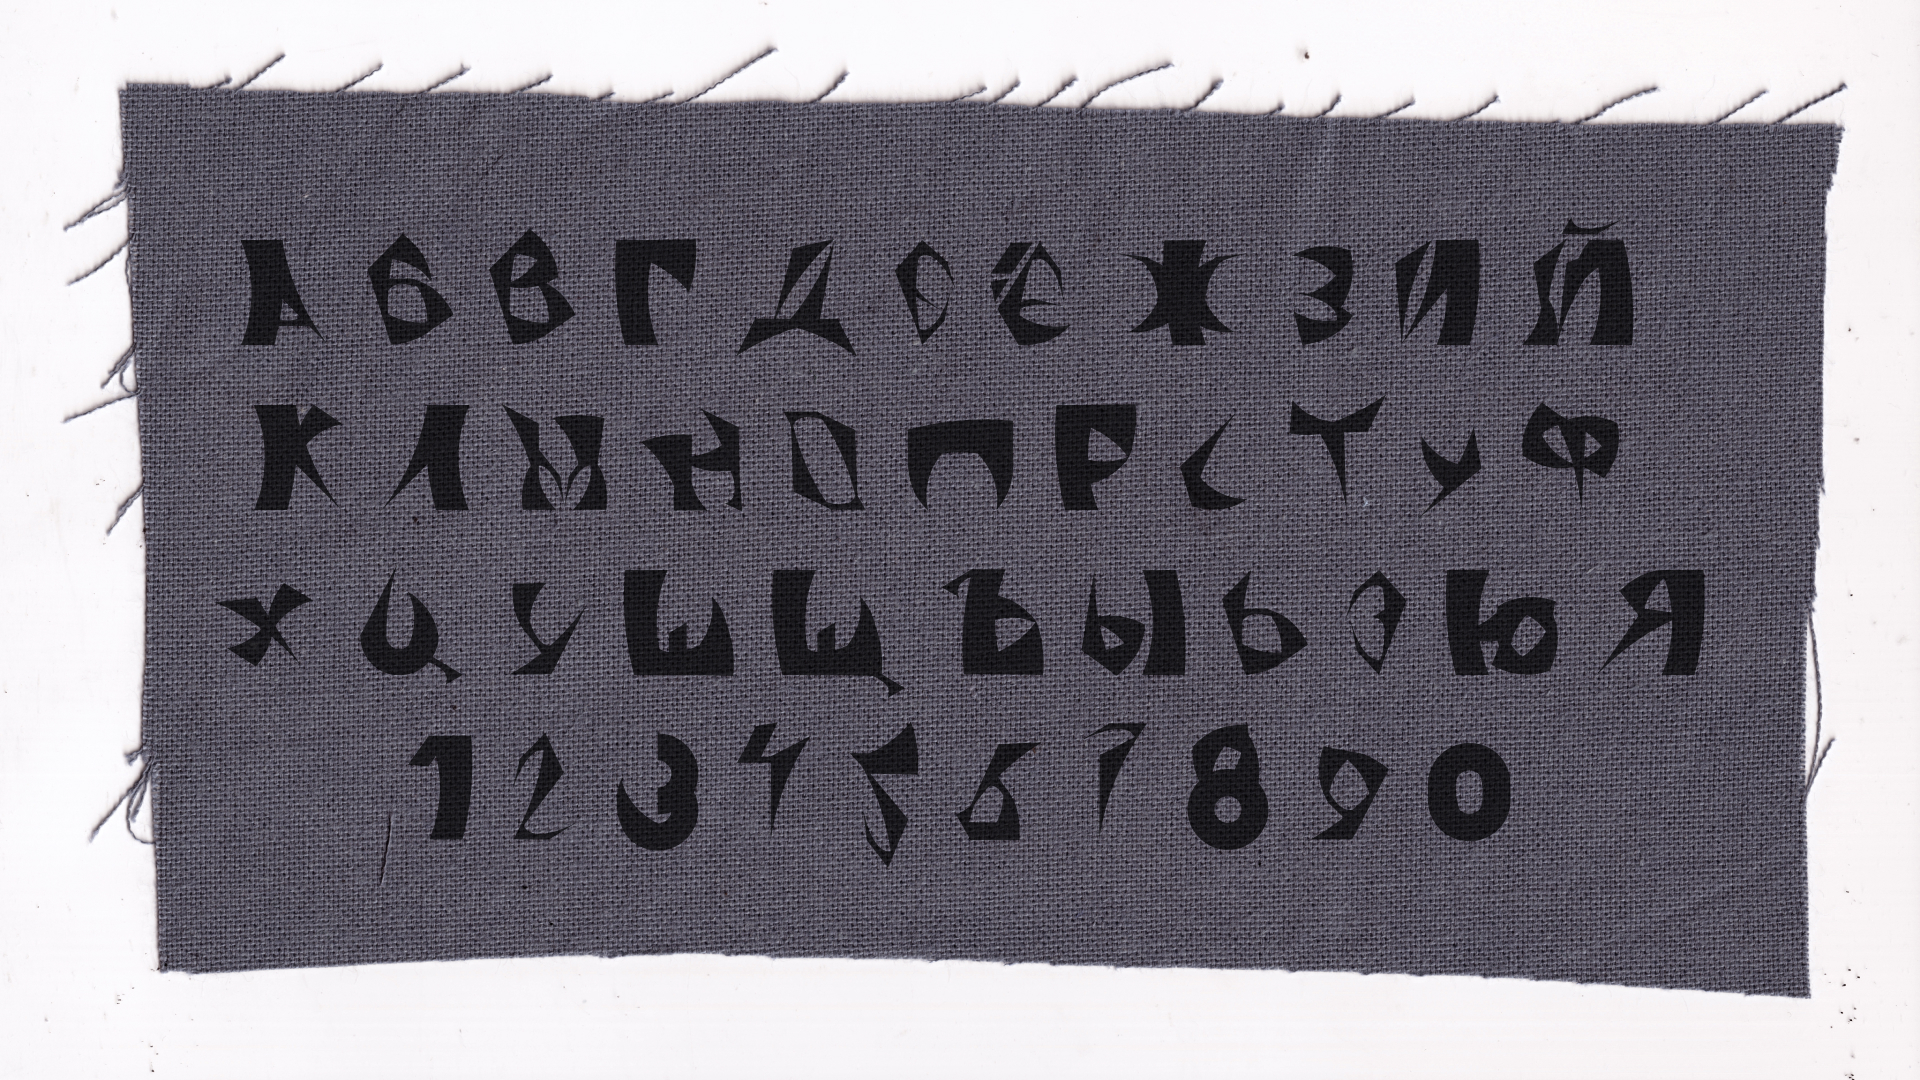 АБВГДЕЁЖЗИЙ
КЛМНОПРСТУФ
ХЦЧШЩЪЫЬЭЮЯ
1234567890